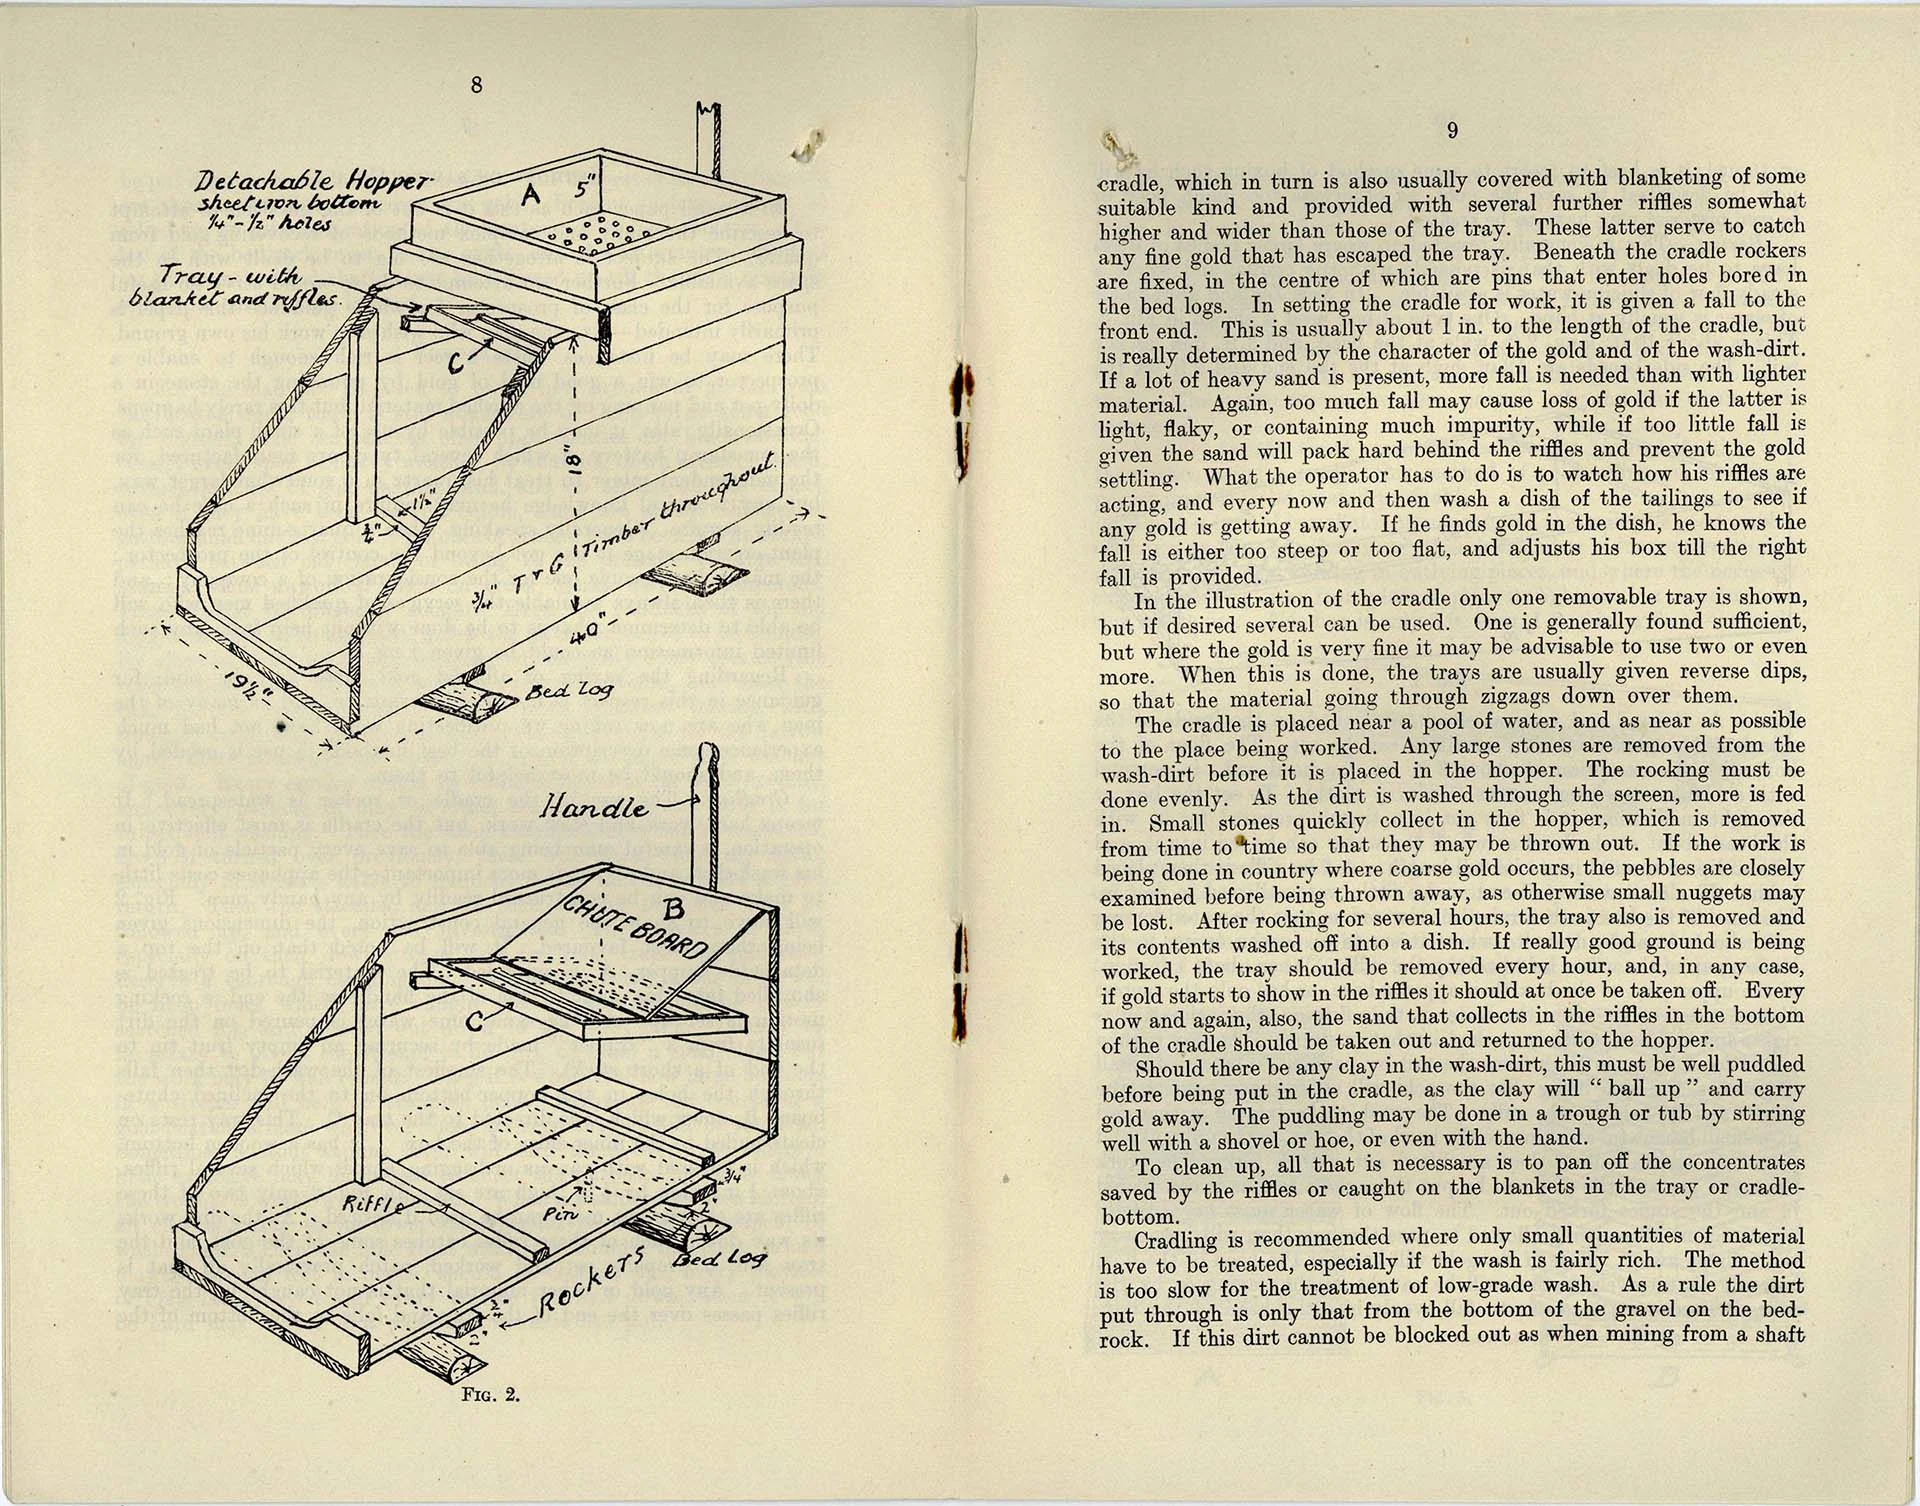 8
Detachable Hopper
sheet iron bottom
¼"-½" holes
A
5"
Tray - with
blanket and riffles.
C
18"
1½"
¾"
¾" T & G Timber throughout.
40"
19½"
Bed Log
Handle
B
CHUTE BOARD
C
Riffle
Pin
¾"
2"
Bed Log
Rockers
¾"
2"
FIG. 2.
9
cradle, which in turn is also usually covered with blanketing of some
suitable kind and provided with several further riffles somewhat
higher and wider than those of the tray. These latter serve to catch
any fine gold that has escaped the tray. Beneath the cradle rockers
are fixed, in the centre of which are pins that enter holes bored in
the bed logs. In setting the cradle for work, it is given a fall to the
front end. This is usually about 1 in. to the length of the cradle, but
is really determined by the character of the gold and of the wash-dirt.
If a lot of heavy sand is present, more fall is needed than with lighter
material. Again, too much fall may cause loss of gold if the latter is
light, flaky, or containing much impurity, while if too little fall is
given the sand will pack hard behind the riffles and prevent the gold
settling. What the operator has to do is to watch how his riffles are
acting, and every now and then wash a dish of the tailings to see if
any gold is getting away. If he finds gold in the dish, he knows the
fall is either too steep or too flat, and adjusts his box till the right
fall is provided.
In the illustration of the cradle only one removable tray is shown,
but if desired several can be used. One is generally found sufficient,
but where the gold is very fine it may be advisable to use two or even
more. When this is done, the trays are usually given reverse dips,
so that the material going through zigzags down over them.
The cradle is placed near a pool of water, and as near as possible
to the place being worked. Any large stones are removed from the
wash-dirt before it is placed in the hopper. The rocking must be
done evenly. As the dirt is washed through the screen, more is fed
in. Small stones quickly collect in the hopper, which is removed
from time to time so that they may be thrown out. If the work is
being done in country where coarse gold occurs, the pebbles are closely
examined before being thrown away, as otherwise small nuggets may
be lost. After rocking for several hours, the tray also is removed and
its contents washed off into a dish. If really good ground is being
worked, the tray should be removed every hour, and, in any case,
if gold starts to show in the riffles it should at once be taken off. Every
now and again, also, the sand that collects in the riffles in the bottom
of the cradle should be taken out and returned to the hopper.
Should there be any clay in the wash-dirt, this must be well puddled
before being put in the cradle, as the clay will “ ball up ” and carry
gold away. The puddling may be done in a trough or tub by stirring
well with a shovel or hoe, or even with the hand.
To clean up, all that is necessary is to pan off the concentrates
saved by the riffles or caught on the blankets in the tray or cradle-
bottom.
Cradling is recommended where only small quantities of material
have to be treated, especially if the wash is fairly rich. The method
is too slow for the treatment of low-grade wash. As a rule the dirt
put through is only that from the bottom of the gravel on the bed-
rock. If this dirt cannot be blocked out as when mining from a shaft